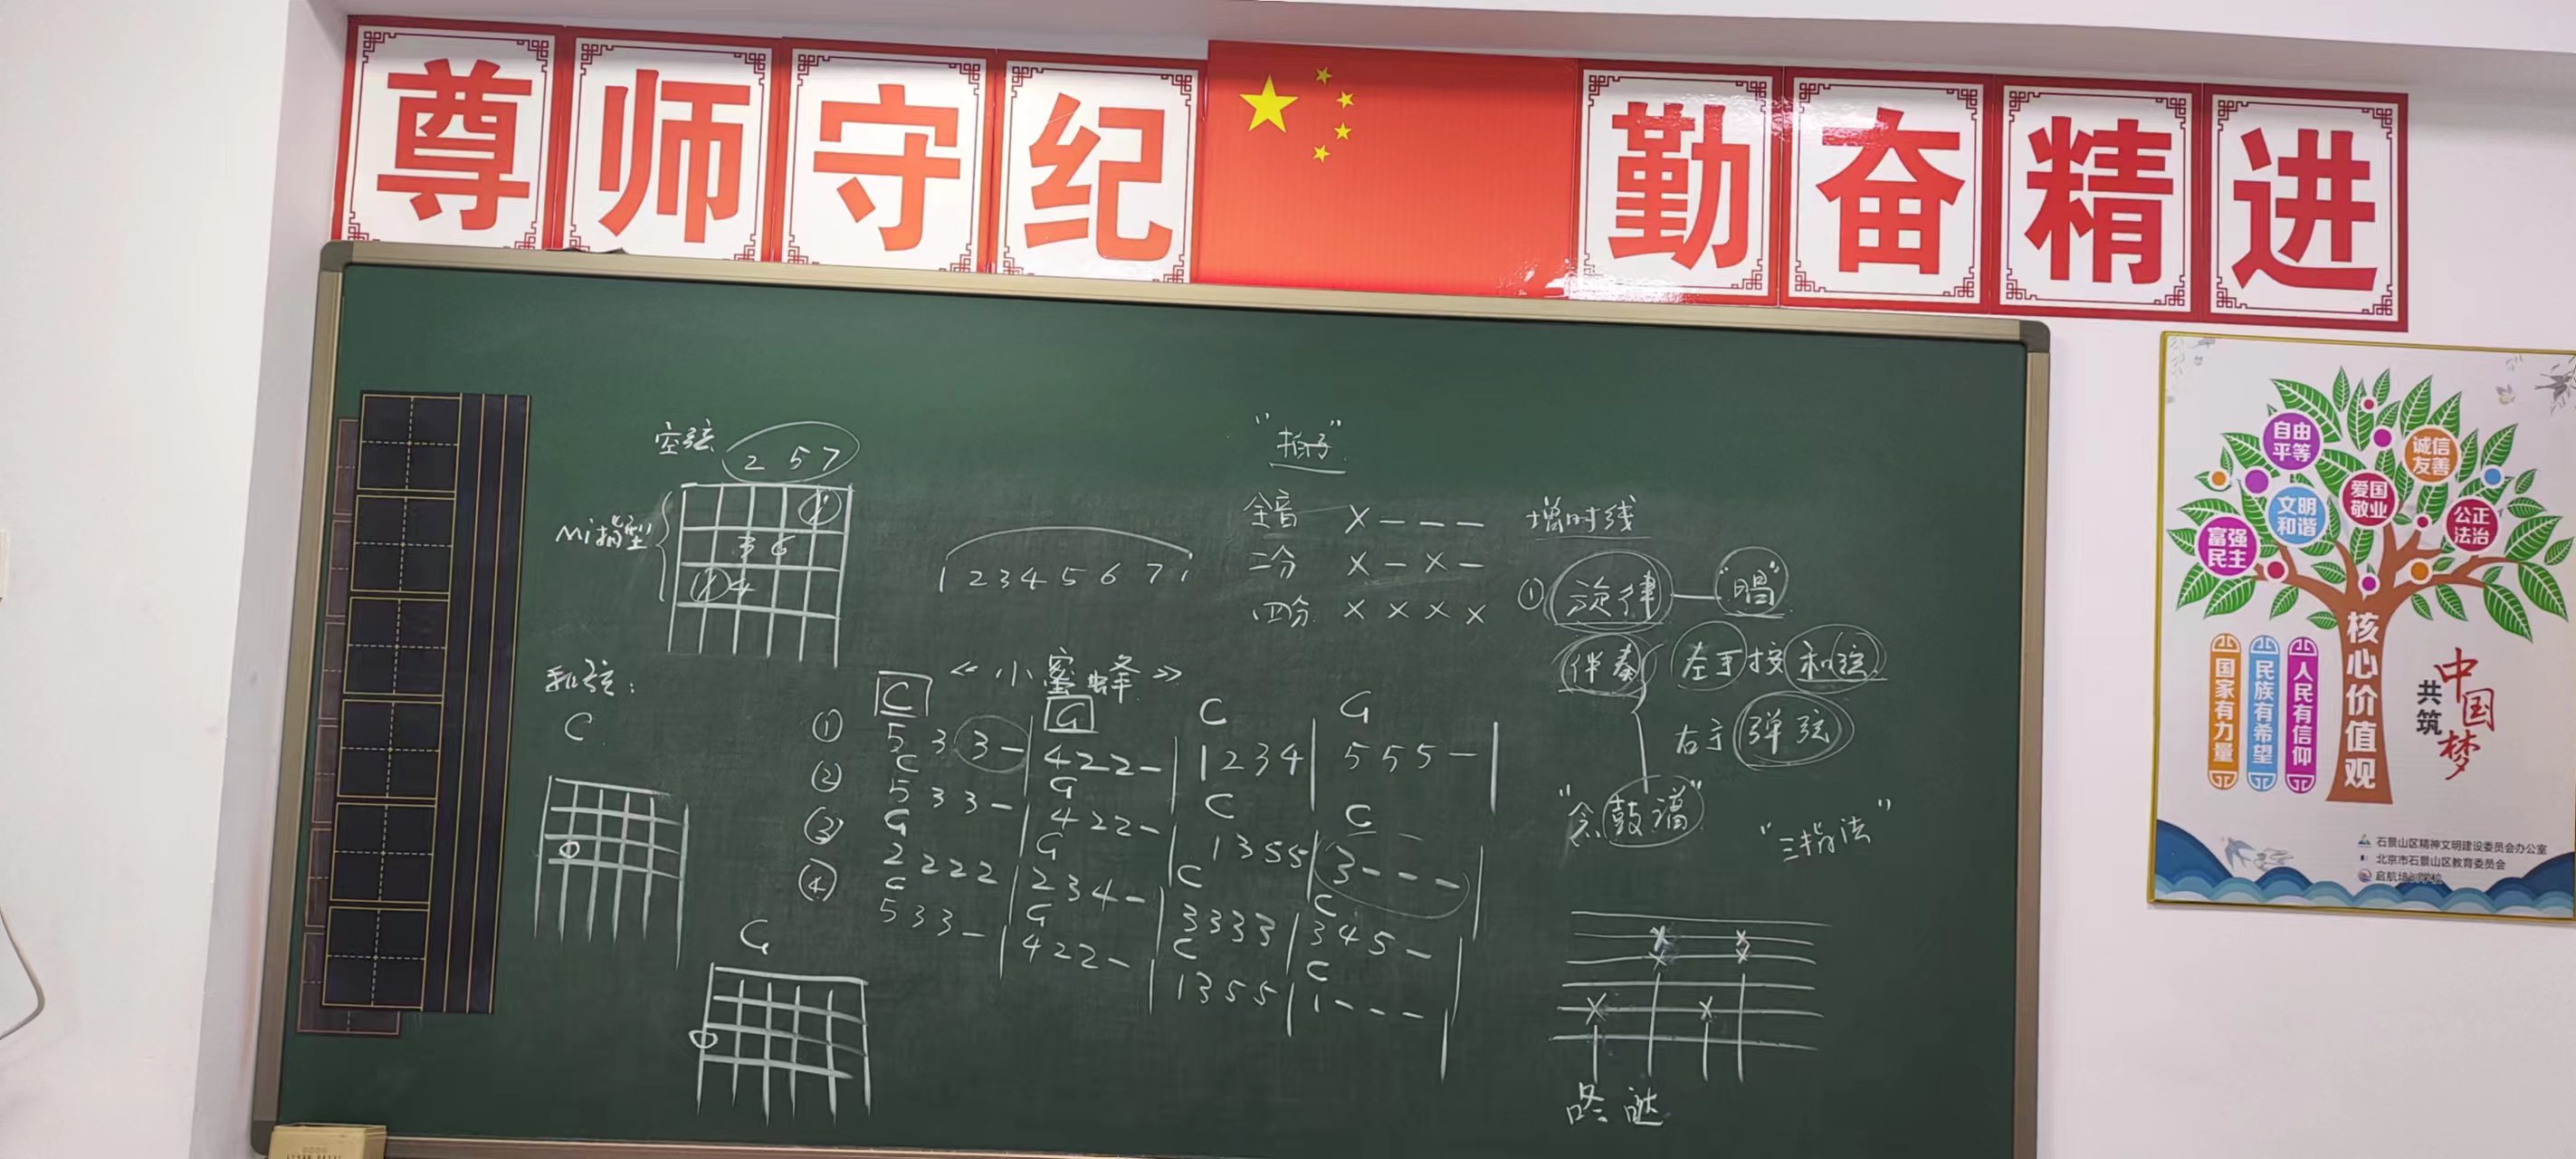 尊师守纪 勤奋精进
空弦 2 5 7
Mi指型
1
3 6
1 4
1 2 3 4 5 6 7 1
"拍子"
全音 X - - -
二分 X - X -
四分 X X X X
增时线
① 旋律 — "唱"
伴奏 左手按和弦
右手弹弦
"念鼓谱"
"三指法"
咚 哒
和弦:
C
G
《小蜜蜂》
C G C G
① 5 3 3 - | 4 2 2 - | 1 2 3 4 | 5 5 5 - |
C G C C
② 5 3 3 - | 4 2 2 - | 1 3 5 5 | 3 - - - |
G G C C
③ 2 2 2 2 | 2 3 4 - | 3 3 3 3 | 3 4 5 - |
C G C C
④ 5 3 3 - | 4 2 2 - | 1 3 5 5 | 1 - - - |
自由平等
诚信友善
文明和谐
爱国敬业
公正法治
富强民主
核心价值观
国家有力量
民族有希望
人民有信仰
共筑中国梦
石景山区精神文明建设委员会办公室
北京市石景山区教育委员会
启航培训学校